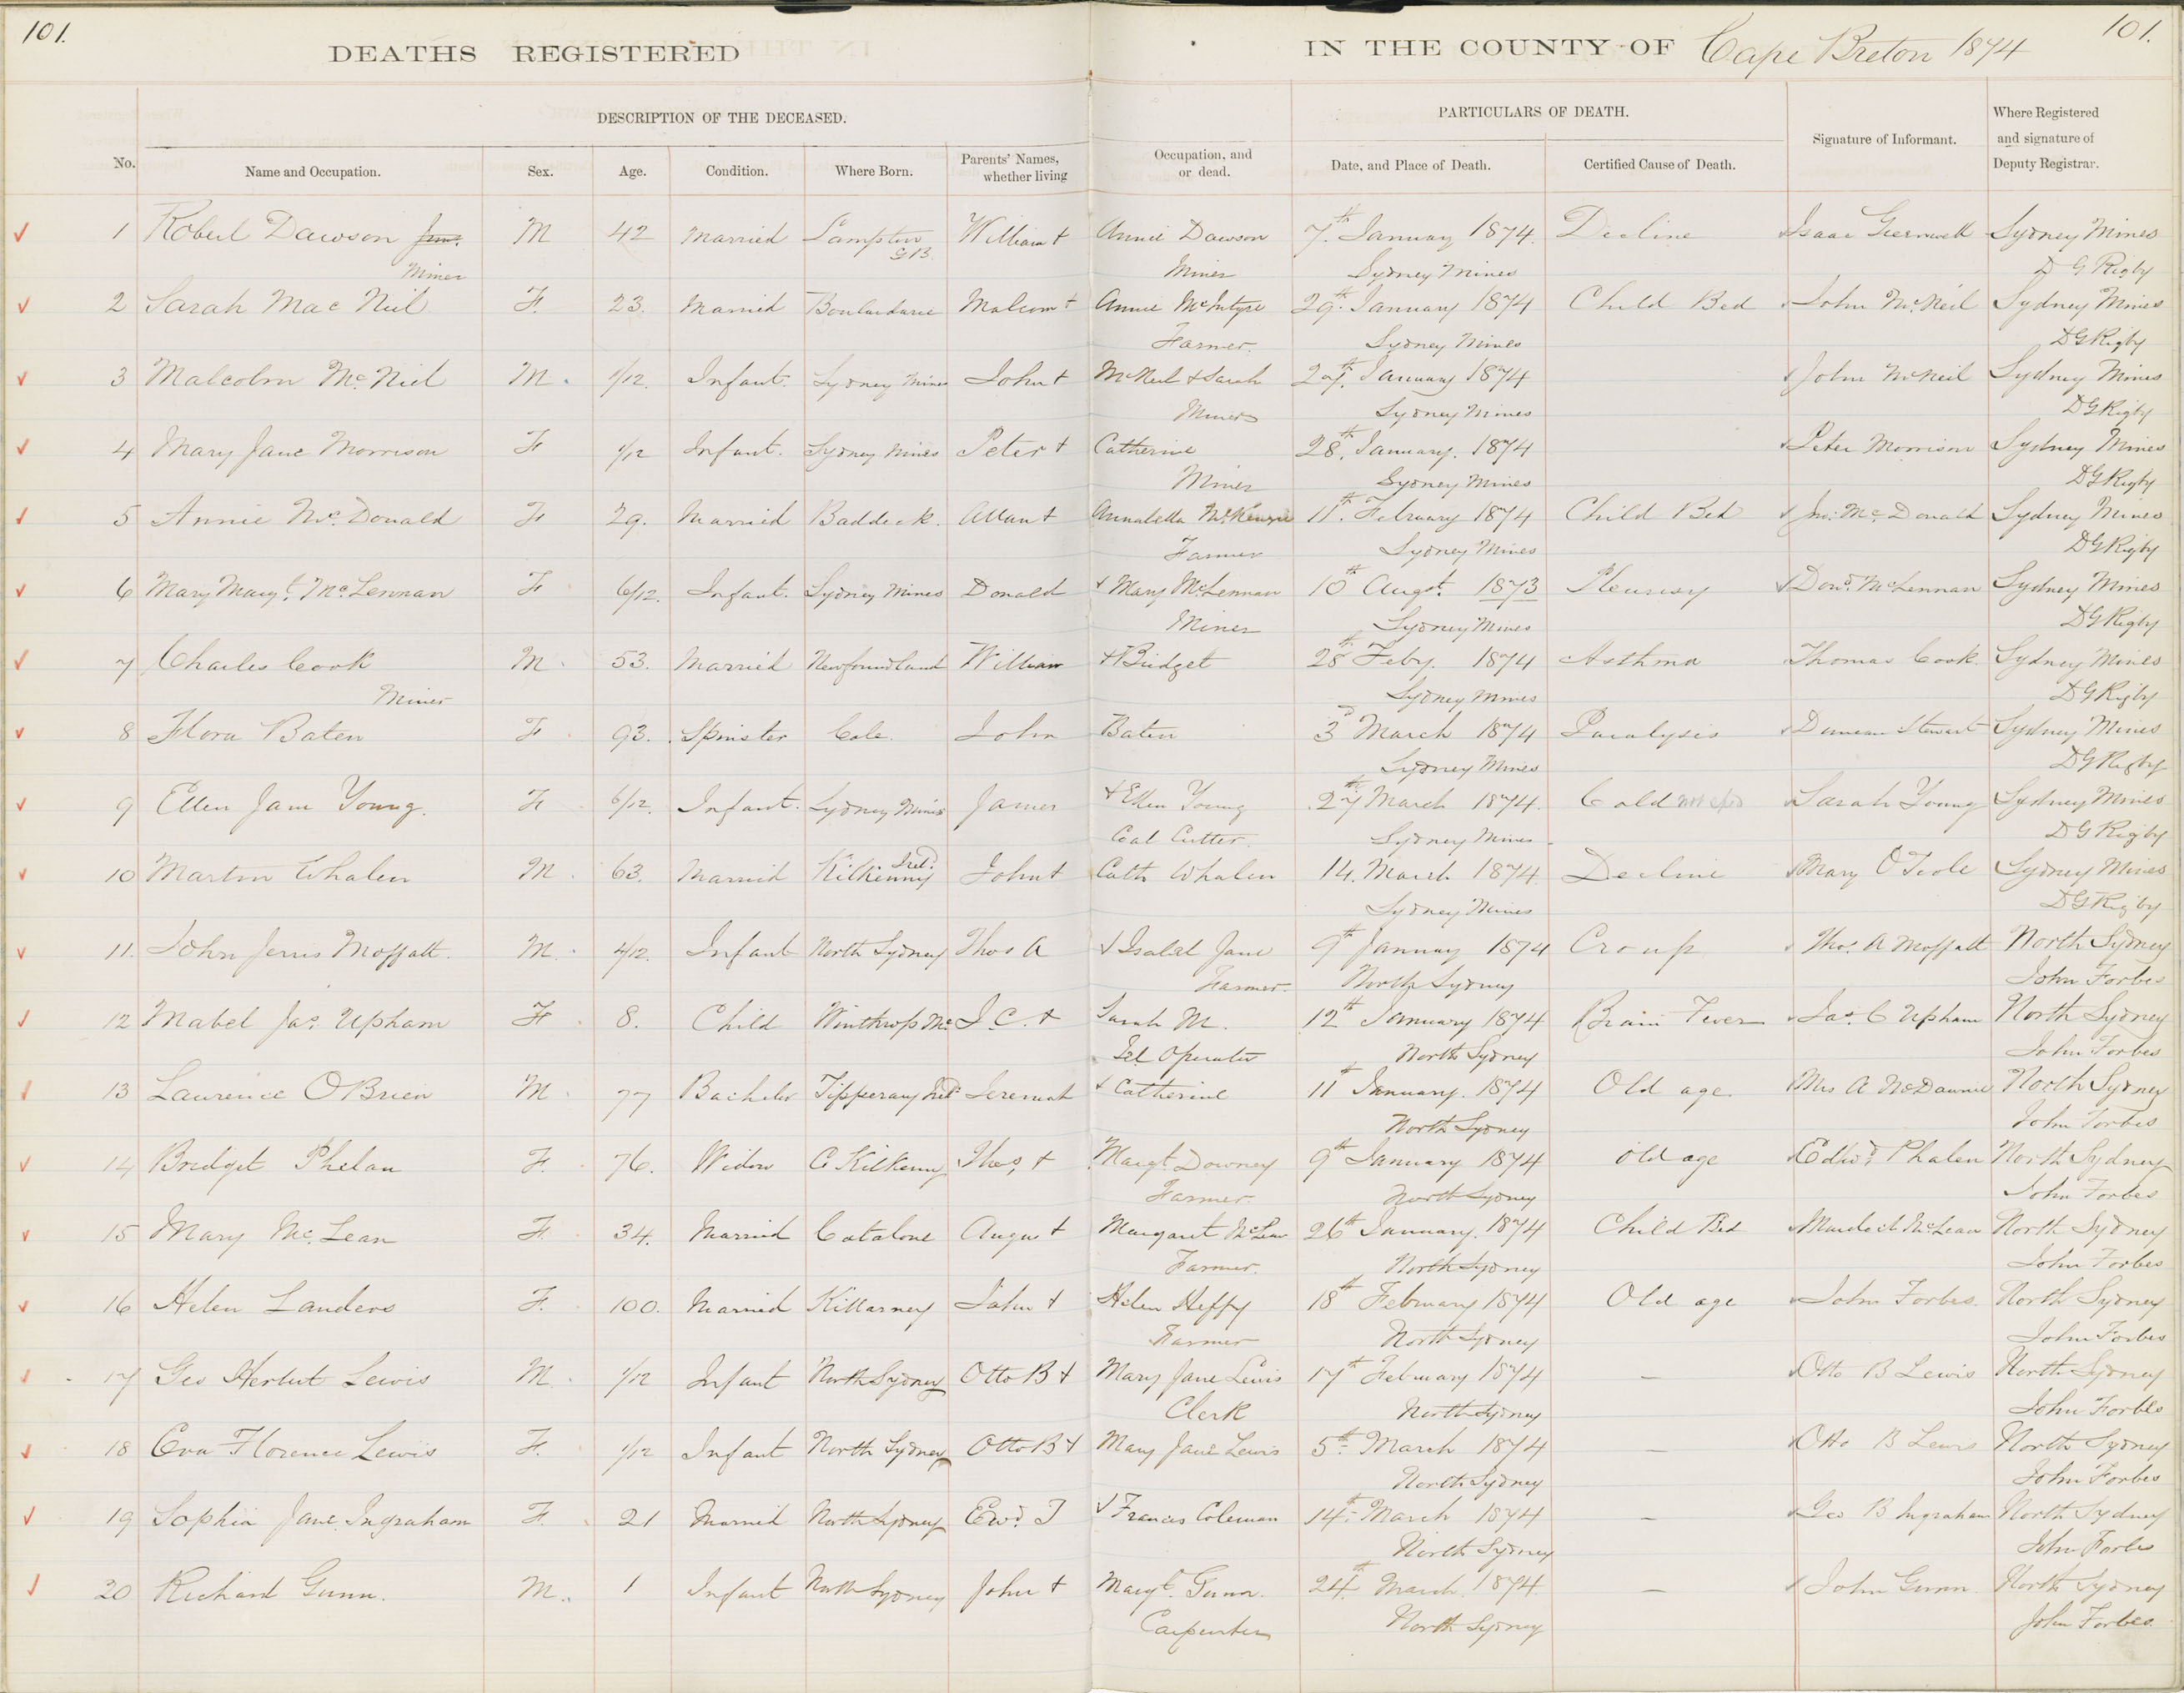 101. 101.
DEATHS REGISTERED IN THE COUNTY OF Cape Breton 1874
DESCRIPTION OF THE DECEASED. PARTICULARS OF DEATH.
No. Name and Occupation. Sex. Age. Condition. Where Born. Parents' Names, whether living Occupation, and or dead. Date, and Place of Death. Certified Cause of Death. Signature of Informant. Where Registered and signature of Deputy Registrar.
1 Robert Dawson Jun. M 42 Married Lampton G B. William + Annie Dawson 7th January 1874. Decline Isaac Greenwell Sydney Mines
Miner Miner Sydney Mines D G Rigby
2 Sarah Mac Neil F. 23. Married Boulardarie Malcom + Annie McIntyre 29th January 1874 Child Bed John McNeil Sydney Mines
Farmer. Sydney Mines D G Rigby
3 Malcolm Mc Niel M. 1/12. Infant. Sydney Mines John + McNeil + Sarah 27th January 1874 John McNeil Sydney Mines
Miner Sydney Mines D G Rigby
4 Mary Jane Morrison F 1/12 Infant. Sydney Mines Peter + Catherine 28th January. 1874 Peter Morrison Sydney Mines
Miner Sydney Mines D G Rigby
5 Annie Mc Donald F 29. Married Baddeck. Allan + Annabella McKenzie 11th February 1874 Child Bed Jno. Mc Donald Sydney Mines
Farmer Sydney Mines D G Rigby
6 Mary Margt. McLennan F 6/12. Infant. Sydney Mines Donald + Mary McLennan 10th Augst. 1873 Pleurisy Dond. McLennan Sydney Mines
Miner Sydney Mines D G Rigby
7 Charles Cook M. 53. Married Newfoundland William + Bridget 28th Feby. 1874 Asthma Thomas Cook. Sydney Mines
Miner Sydney Mines D G Rigby
8 Flora Baten F. 93. Spinster Cole. John Baten 3d March 1874 Paralysis Duncan Stewart Sydney Mines
Sydney Mines D G Rigby
9 Ellen Jane Young. F 6/12. Infant. Sydney Mines James + Ellen Young 27th March 1874. Cold Sarah Young Sydney Mines
Coal Cutter. Sydney Mines D G Rigby
10 Martin Whalen M. 63. Married Kilkenny Ireld. John + Cath Whalen 14. March 1874. Decline Mary O Toole Sydney Mines
Sydney Mines D G Rigby
11. John Jerris Moffatt. M. 4/12. Infant North Sydney Thos A + Isabel Jane 9th January 1874 Croup Thos. A Moffatt North Sydney
Farmer. North Sydney John Forbes
12 Mabel Jas. Upham F. 8. Child Winthrop Me J. C. + Sarah M. 12th January 1874 Brain Fever Jas. C Upham North Sydney
Tel Operator North Sydney John Forbes
13 Laurence O Brien M. 77 Bachelor Tipperary Ireld. Jeremiah + Catherine 11th January. 1874 Old age. Mrs A McDawnie North Sydney
North Sydney John Forbes
14 Bridget Phelan F. 76. Widow C Kilkenny Thos, + Margt. Downey 9th January 1874 old age Edwd. Phalen North Sydney
Farmer. North Sydney John Forbes
15 Mary Mc. Lean F. 34. Married Catalone Angus + Margaret McLean 26th January. 1874 Child Bed Murdoch McLean North Sydney
Farmer. North Sydney John Forbes
16 Helen Landers F. 100. Married Killarney John + Helen Heffy 18th February 1874 Old age John Forbes. North Sydney
Farmer North Sydney John Forbes
17 Geo Herbert Lewis M. 1/12 Infant North Sydney Otto B + Mary Jane Lewis 17th February 1874 — Otto B Lewis North Sydney
Clerk North Sydney John Forbes
18 Eva Florence Lewis F. 1/12 Infant North Sydney Otto B + Mary Jane Lewis 5th March 1874 — Otto B Lewis North Sydney
North Sydney John Forbes
19 Sophia Jane Ingraham F. 21 Married North Sydney Ewd. T + Frances Coleman 14th March 1874 — Geo B Ingraham North Sydney
North Sydney John Forbes
20 Richard Gunn. M. 1 Infant North Sydney John + Margt. Gunn. 24th March. 1874. — John Gunn. North Sydney
Carpenter North Sydney John Forbes.